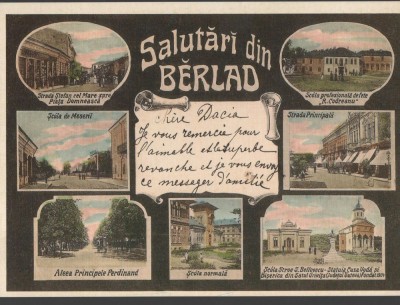 Salutări din
BĔRLAD
Strada Ștefan cel Mare spre
Piața Domnească
Șcóla profesională de fete
"N. Codreanu"
Șcóla de Meserii
Strada Principală
Mlle Dacia
Je vous remercie pour
l'aimable et la superbe
revanche et je vous envoy
ce messager d'amitié
Aleea Principele Ferdinand
Șcóla normală
Șcóla Stroe S. Bellоescu - Statuia, Casa Vodă și
Biserica din Satul Grivița